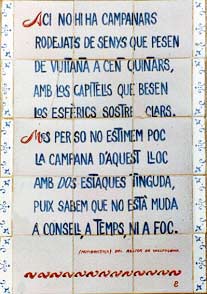 ACI NO HI HA CAMPANARS
RODEJATS DE SENYS QUE PESEN
DE VUITANA A CEN QUINARS,
AMB LOS CAPITELLS QUE BESEN
LOS ESFÈRICS SOSTRES CLARS.
MES PER SO NO ESTIMEM POC
LA CAMPANA D'AQUEST LLOC
AMB DOS ESTAQUES TINGUDA,
PUIX SABEM QUE NO ESTÀ MUDA
A CONSELL, A TEMPS, NI A FOC.
DEL RECTOR DE VALLFOGONA
8